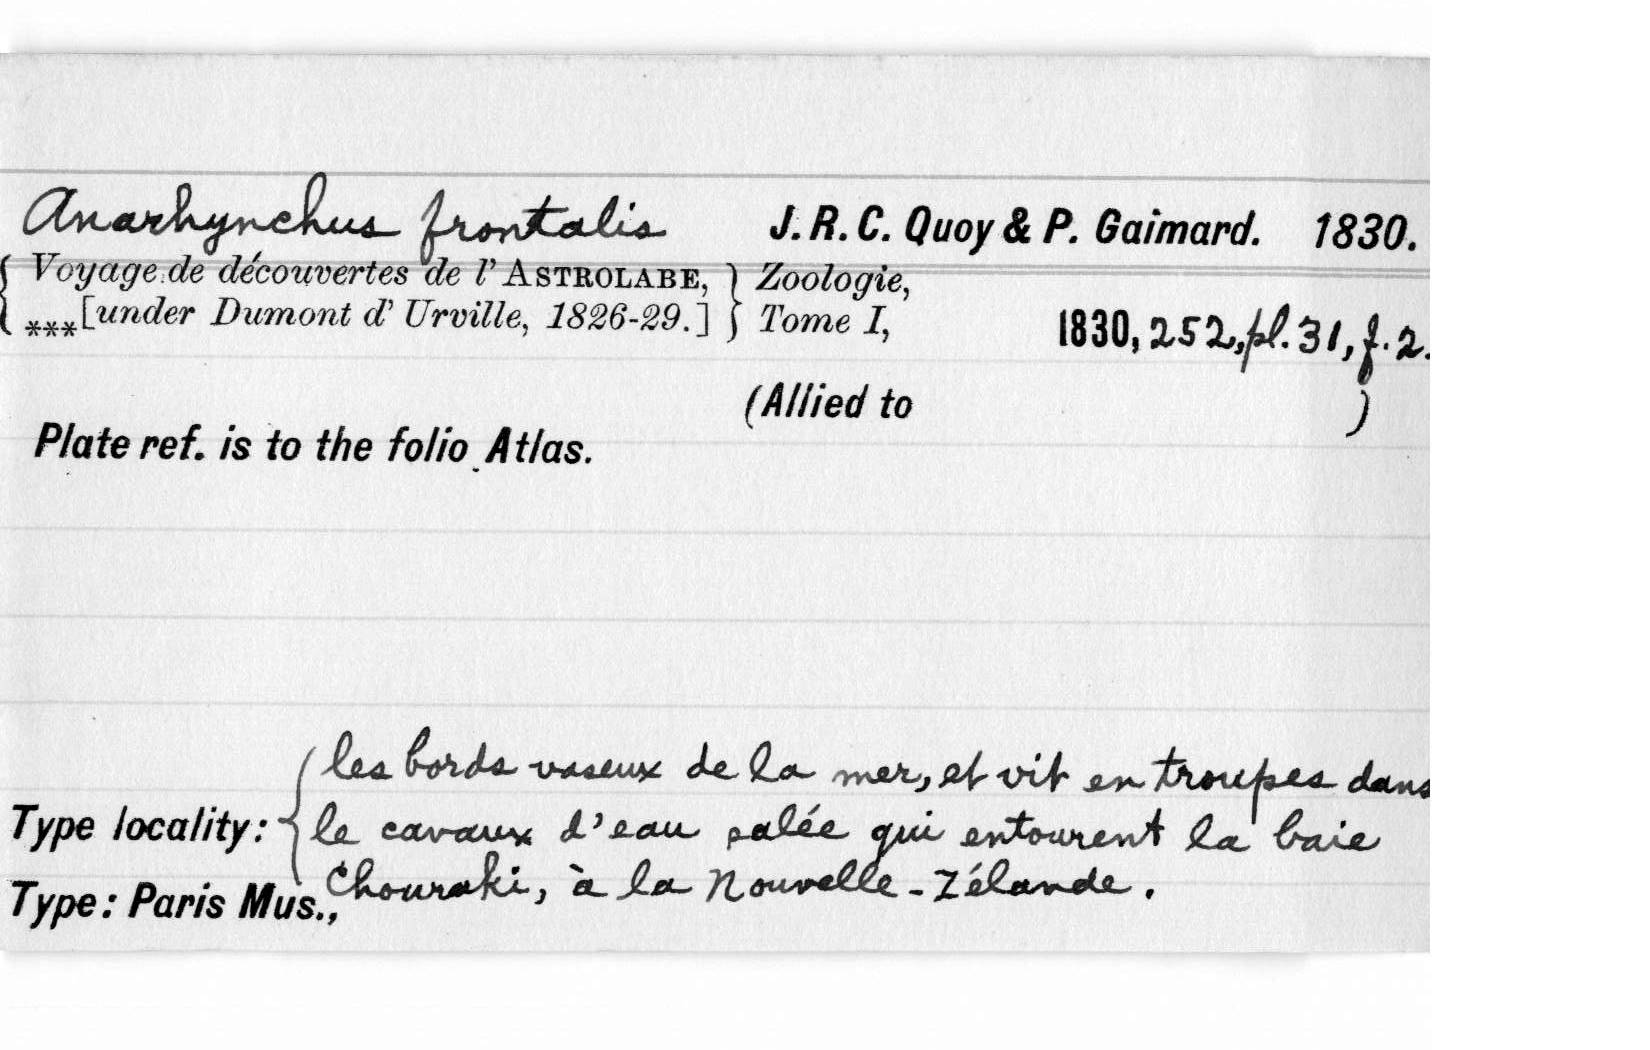 Anarhynchus frontalis J. R. C. Quoy & P. Gaimard. 1830.
{ Voyage de découvertes de l' ASTROLABE, } Zoologie,
{ ***[under Dumont d' Urville, 1826-29.] } Tome I, 1830, 252, pl. 31, f. 2.
(Allied to )
Plate ref. is to the folio Atlas.
les bords vaseux de la mer, et vit en troupes dans
Type locality: { le cavaux d'eau salée qui entourent la baie
Chouraki, à la Nouvelle-Zélande.
Type: Paris Mus.,